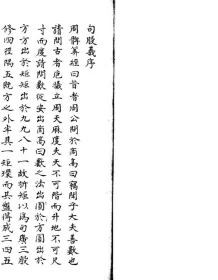 句股義序
周髀算經曰昔者周公問於商高曰竊聞乎大夫善數也
請問古者庖犧立周天曆度夫天不可階而升地不可尺
寸而度請問數從安出商高曰數之法出於圓方圓出於
方方出於矩矩出於九九八十一故折矩以為句廣三股
修四徑隅五既方之外半其一矩環而共盤得成三四五